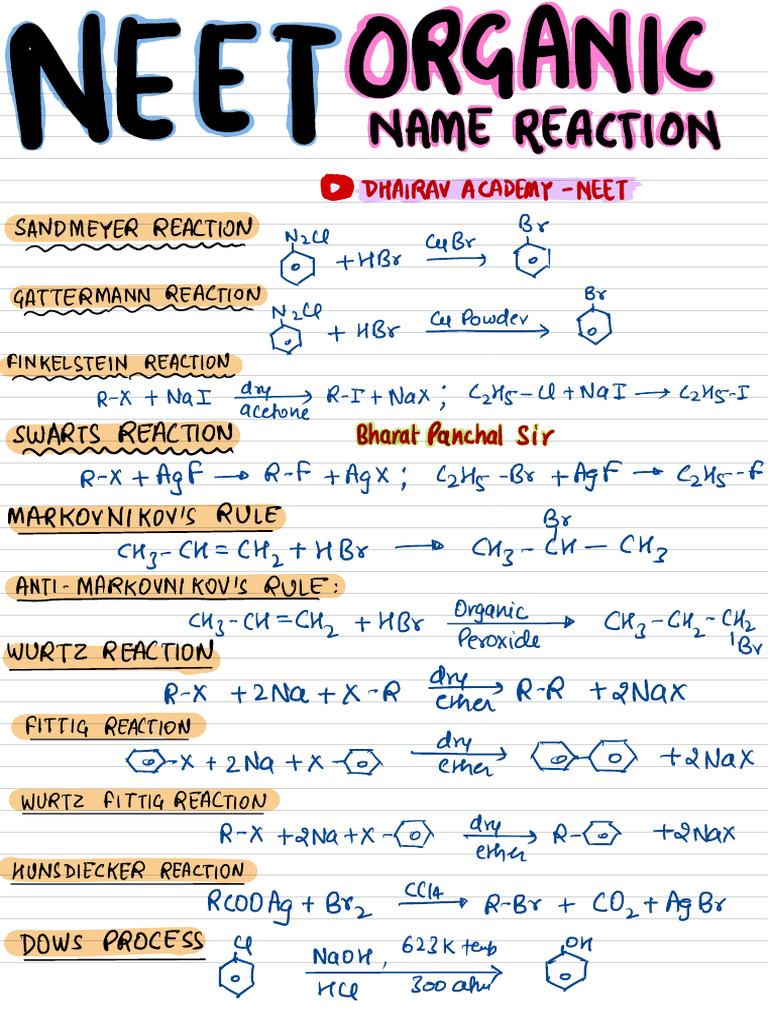 NEET ORGANIC
NAME REACTION
DHAIRAV ACADEMY -NEET
SANDMEYER REACTION
N2Cl + HBr CuBr → Br
GATTERMANN REACTION
N2Cl + HBr Cu Powder → Br
FINKELSTEIN REACTION
R-X + NaI dry acetone → R-I + NaX ; C2H5-Cl + NaI → C2H5-I
SWARTS REACTION Bharat Panchal Sir
R-X + AgF → R-F + AgX ; C2H5-Br + AgF → C2H5-F
MARKOVNIKOV'S RULE
CH3-CH=CH2 + HBr → CH3-CH-CH3
Br
ANTI-MARKOVNIKOV'S RULE:
CH3-CH=CH2 + HBr Organic Peroxide → CH3-CH2-CH2
Br
WURTZ REACTION
R-X + 2Na + X-R dry ether → R-R + 2NaX
FITTIG REACTION
-X + 2Na + X- dry ether → + 2NaX
WURTZ FITTIG REACTION
R-X + 2Na + X- dry ether → R- + 2NaX
HUNSDIECKER REACTION
RCOOAg + Br2 CCl4 → R-Br + CO2 + AgBr
DOWS PROCESS
Cl NaOH, 623K temp → OH
HCl 300 atm